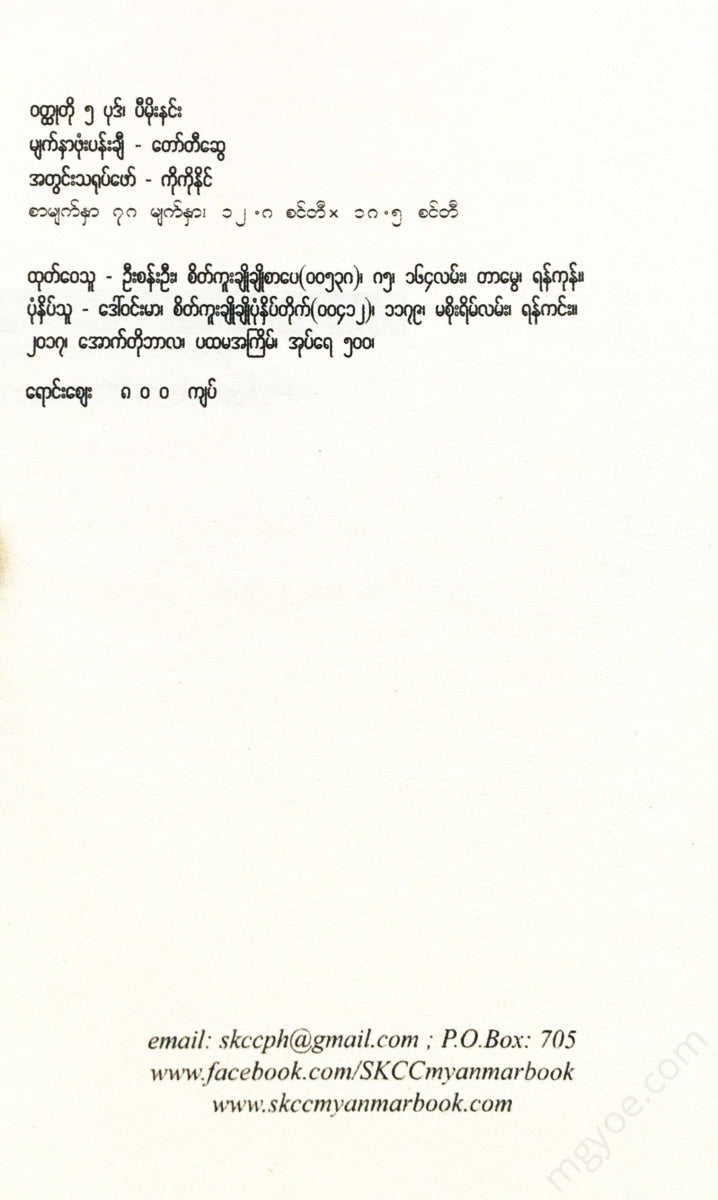 ဝတ္ထုတို ၅ ပုဒ်၊ ပီမိုးနင်း
မျက်နှာဖုံးပန်းချီ - တော်တီဆွေ
အတွင်းသရုပ်ဖော် - ကိုကိုနိုင်
စာမျက်နှာ ၇ဂ မျက်နှာ၊ ၁၂.ဂ စင်တီ× ၁ဂ.၅ စင်တီ
ထုတ်ဝေသူ - ဦးစန်းဦး၊ စိတ်ကူးချိုချိုစာပေ(၀၀၅၃ဂ)၊ ဂ၅၊ ၁၆၄လမ်း၊ တာမွေ၊ ရန်ကုန်။
ပုံနှိပ်သူ - ဒေါ်ဝင်းမာ၊ စိတ်ကူးချိုချိုပုံနှိပ်တိုက်(၀၀၄၁၂)၊ ၁၁၇၉၊ မစိုးရိမ်လမ်း၊ ရန်ကင်း။
၂၀၁၇၊ အောက်တိုဘာလ၊ ပထမအကြိမ်၊ အုပ်ရေ ၅၀၀၊
ရောင်းဈေး ၈ ၀ ၀ ကျပ်
email: skccph@gmail.com ; P.O.Box: 705
www.facebook.com/SKCCmyanmarbook
www.skccmyanmarbook.com
mgyoe.com